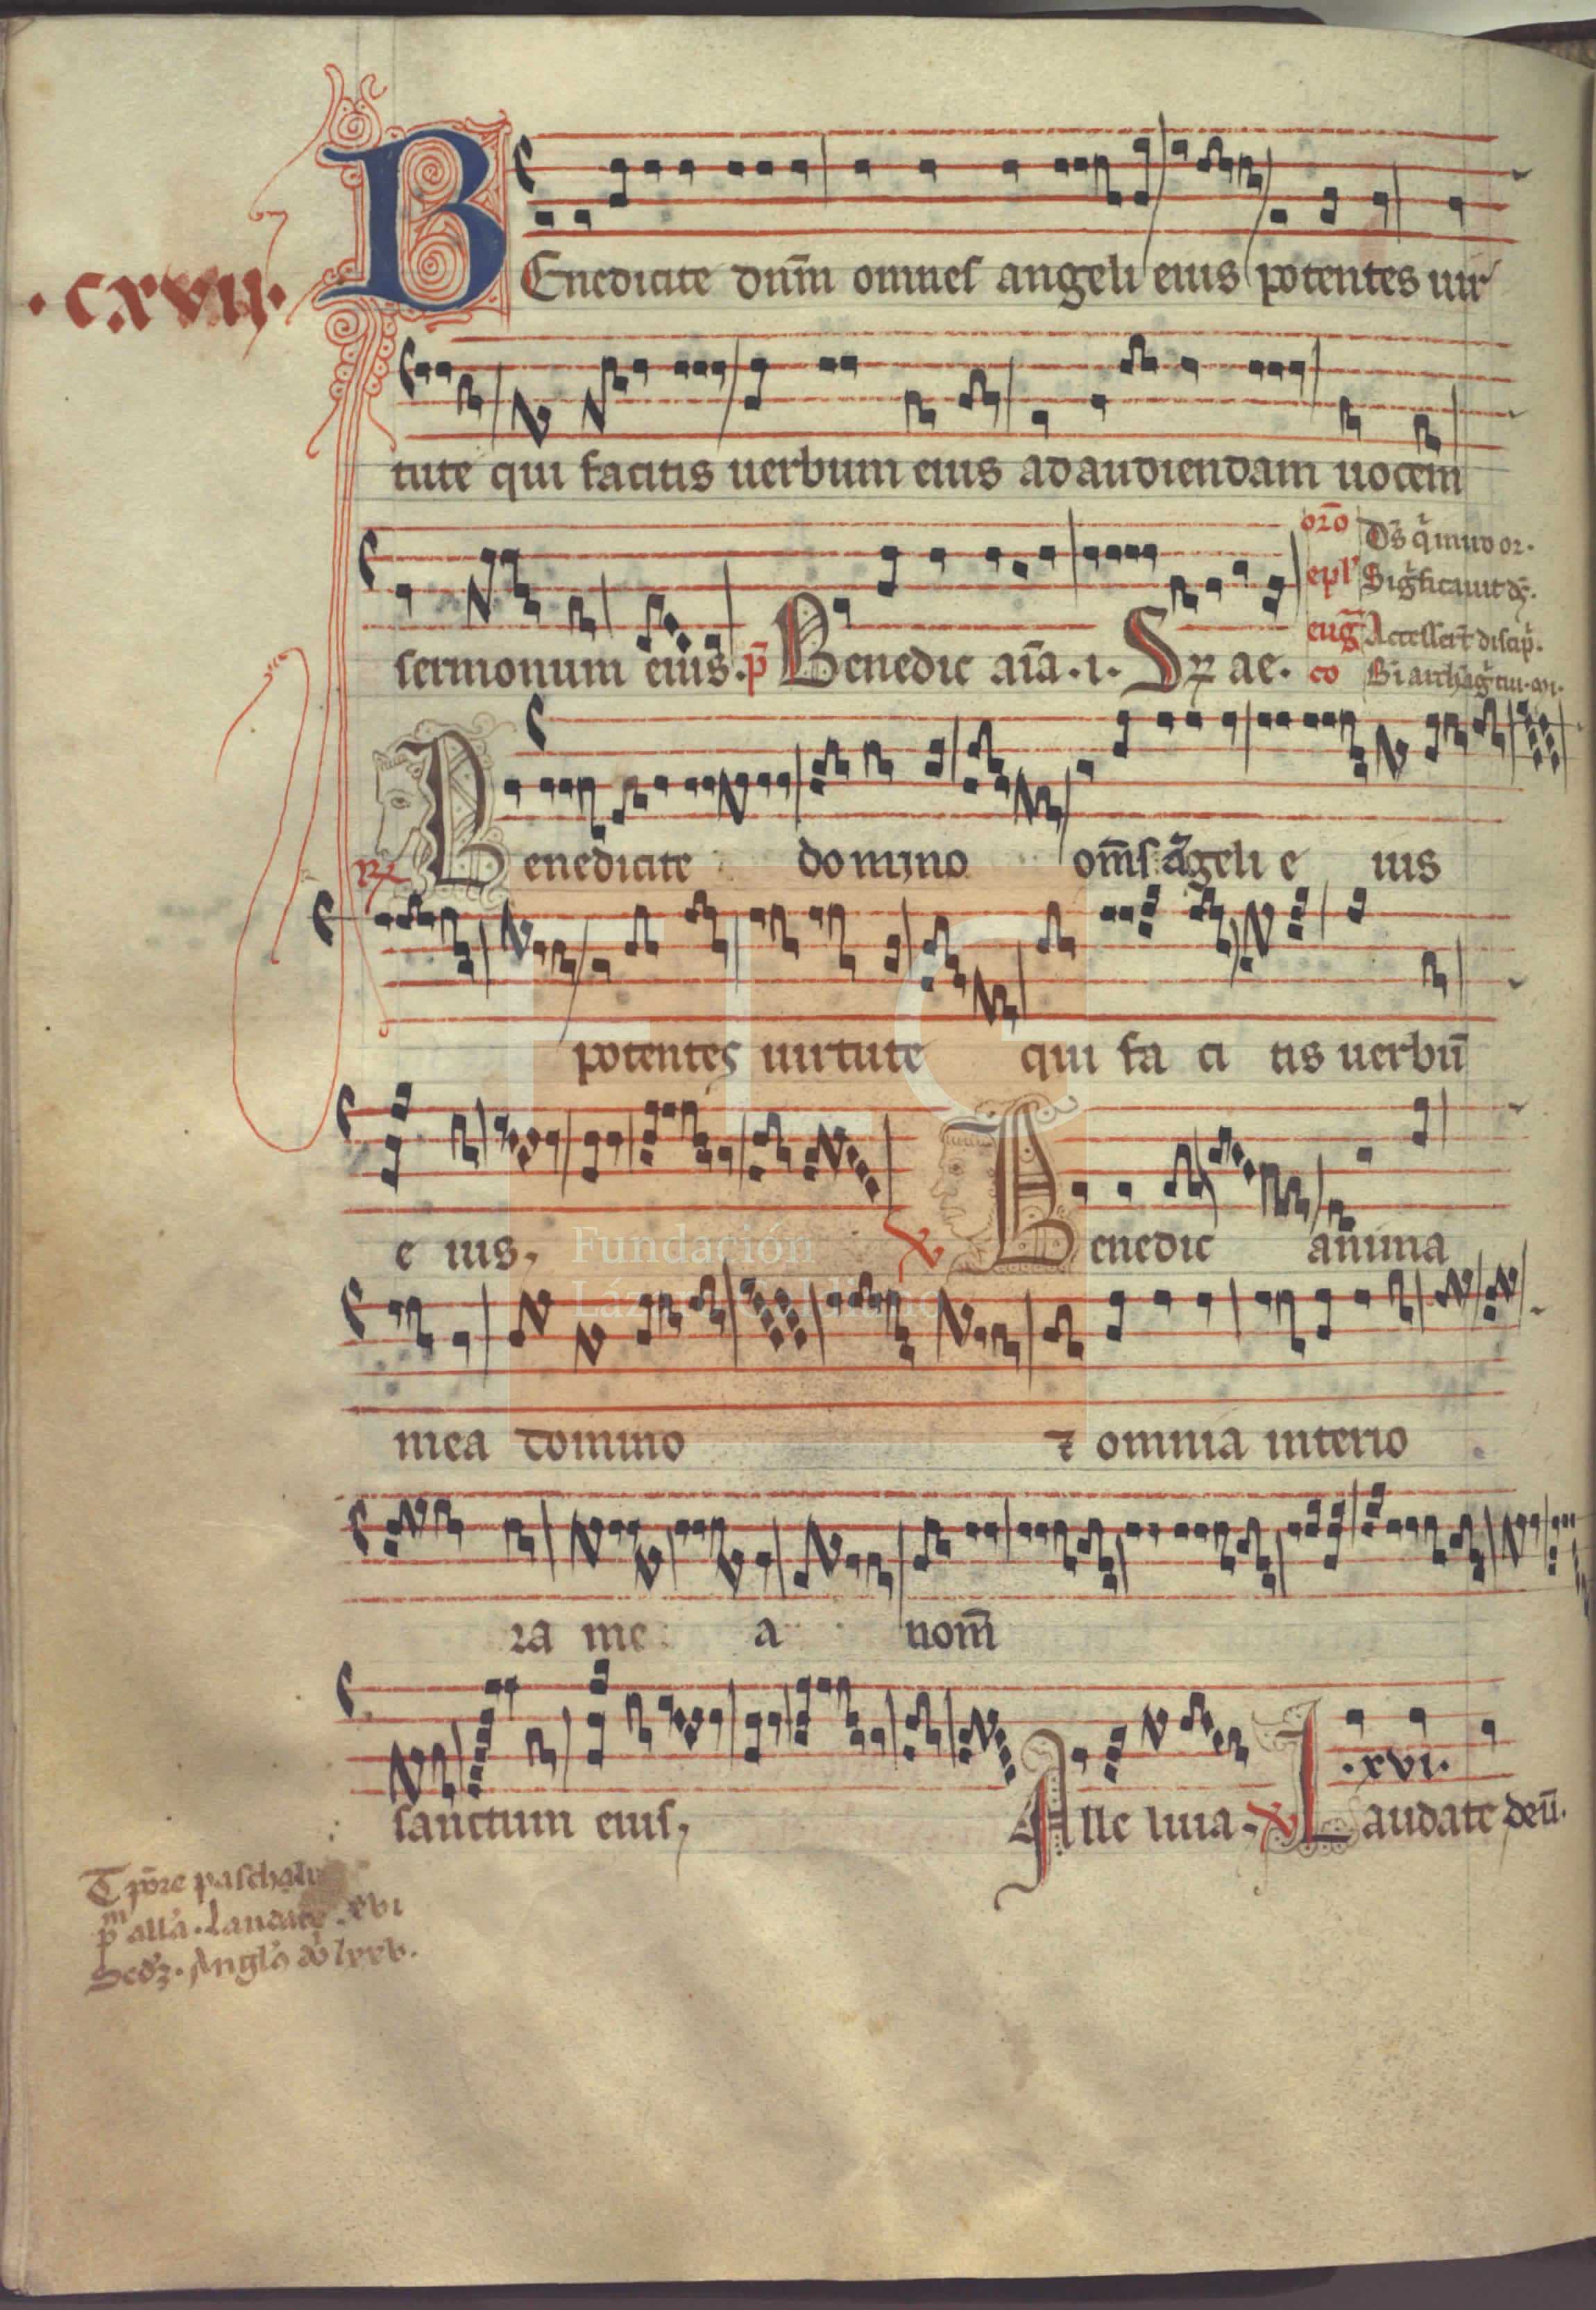 ·cxvii·
BEnedicite dnm̄ omnes angeli eius potentes uir
tute qui facitis uerbum eius ad audiendam uocem
sermonum eius. p̄ Benedic aīa. i. S ae.
oro Ds q̄ miro or.
epl' Sigficauit ds.
eug Accesser̄t discip.
co
℟ Benedicite domino om̄s āgeli e ius
potentes uirtute qui fa ci tis uerbū
e ius. ℣ Benedic anima
mea domino ⁊ omnia interio
ra me a nom̄
sanctum eius, Alle luia. ℣ Laudate deū.
·xvi·
Tpōre paschali
p̄m all'a. Laudate. xvi
Scd'. Angl's lxxv.
Fundación
Lázaro Galdiano